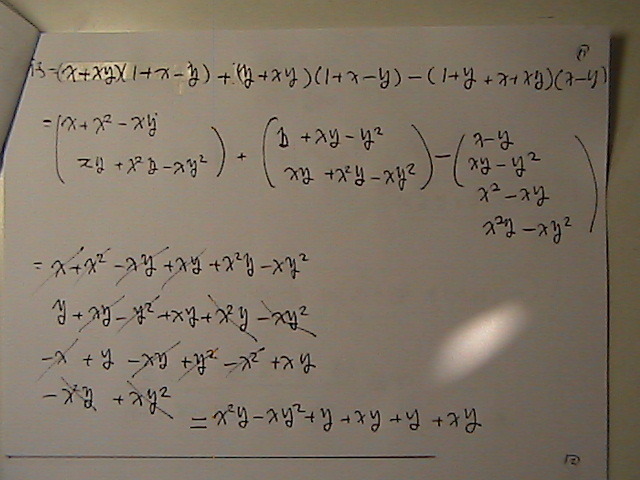 ①
=(x+xy)(1+x-y)+(y+xy)(1+x-y)-(1+y+x+xy)(x-y)
=(x+x²-xy xy+x²y-xy²)+(y+xy-y² xy+x²y-xy²)-(x-y xy-y² x²-xy x²y-xy²)
=x+x²-xy+xy+x²y-xy²
y+xy-y²+xy+x²y-xy²
-x+y-xy+y²-x²+xy
-x²y+xy²
=x²y-xy²+y+xy+y+xy